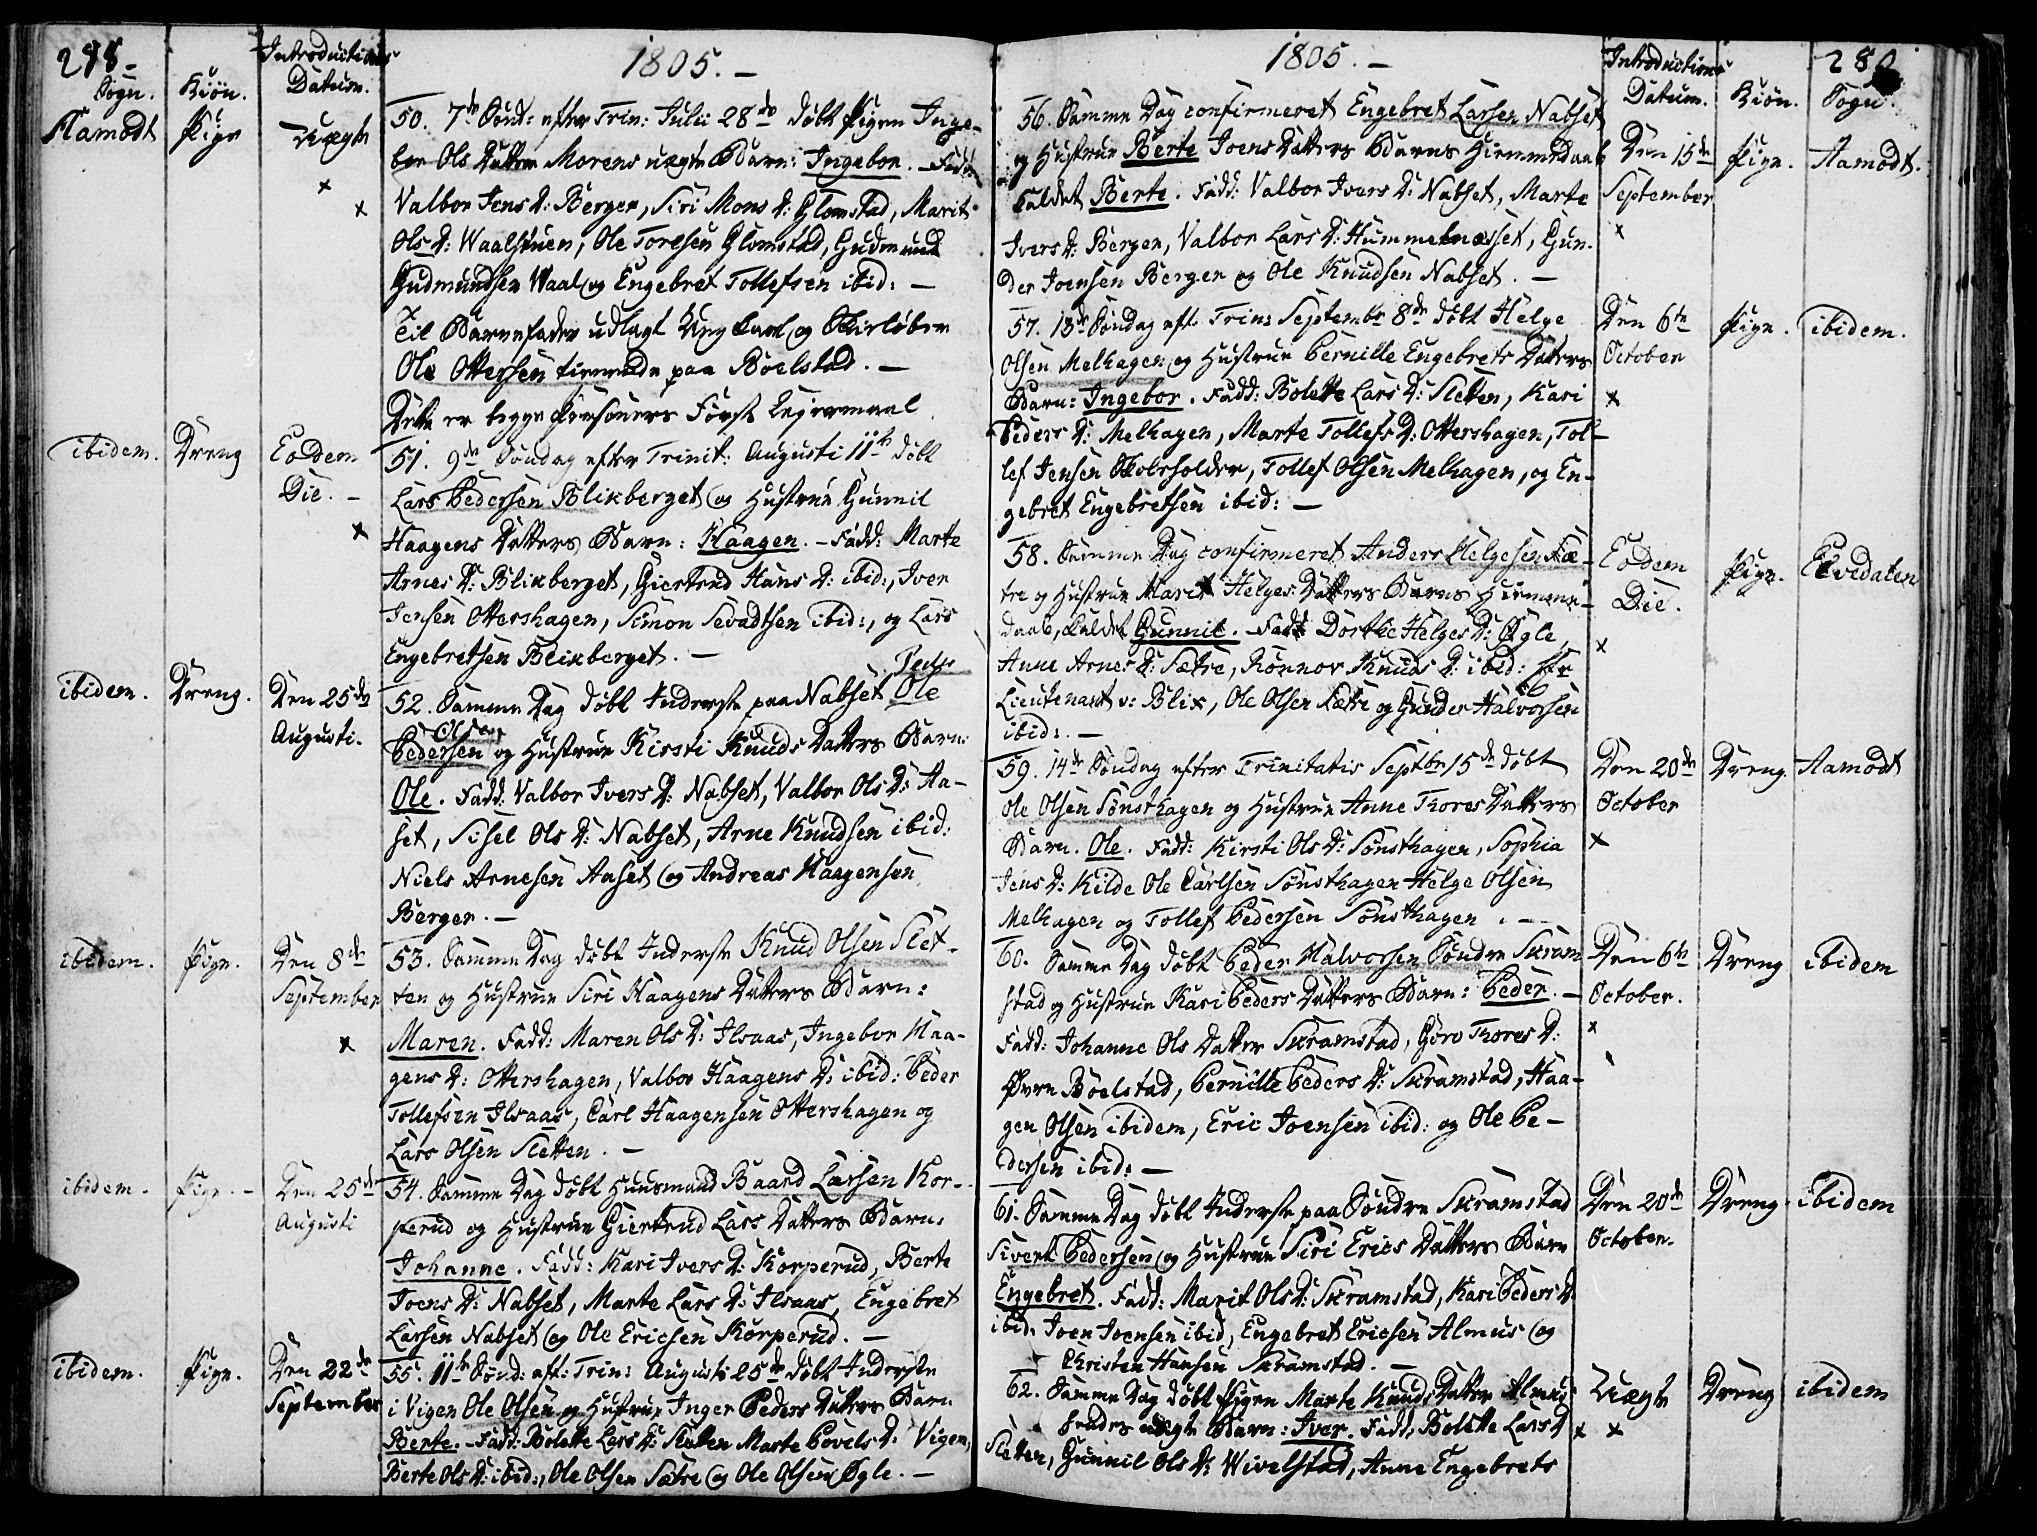 288.
Sogn.
Kiön.
Introductions
Datum.
1805. -
Aamodt
Pige
Uægte
50. 7de Sønd: efter Trin: Julii 28de døbt Pigen Inge-
bor Ols Datter Morens uægte Barn: Ingebor. - Fadd:
Valbor Jens D: Berger, Siri Mons D: Glomstad, Marit
Ols D: Waalstuen, Ole Toresen Glomstad, Gudmund
Gudmundsen Waal og Engebret Tollefsen ibid: -
Til Barnefader udlagt Ung Karl og Skieløber
Ole Ottersen tienende paa Boelstad. -
Dette er begge Personers Første Leiermaal.
ibidem.
Dreng
Eodem
Die. -
51. 9de Søndag efter Trinit: Augusti 11te døbt
Lars Pedersen Blikberget og Hustrue Gunnil
Haagens Datters Barn: Haagen. - Fadd: Marte
Arnes D: Blikberget, Giertrud Hans D: ibid:, Iver
Jensen Ottershagen, Simon Sevadtsen ibid:, og Lars
Engebretsen Blikberget. -
ibidem.
Dreng.
Den 25de
Augusti.
Peder
52. Samme Dag døbt Inderste paa Nabset Ole
Olsen
Pedersen og Hustrue Kirsti Knuds Datters Barn:
Ole. Fadd: Valbor Ivers D: Nabset, Valbor Ols D: Aa-
set, Sisel Ols D: Nabset, Arne Knudsen ibid:
Niels Arnesen Aaset og Andreas Haagensen
Berger. -
ibidem.
Pige.
Den 8de
September
53. Samme Dag døbt Inderste Knud Olsen Slet-
ten og Hustrue Siri Haagens Datters Barn:
Maren. Fadd: Maren Ols D: Ilsaas, Ingebor Haa-
gens D: Ottershagen, Valbor Haagens D: ibid: Peder
Tollefsen Ilsaas, Carl Haagensen Ottershagen og
Lars Olsen Sletten. -
ibidem.
Pige. -
Den 25de
Augusti
54. Samme Dag døbt Huusmand Baard Larsen Kor-
perud og Hustrue Giertrud Lars Datters Barn:
Johanne. Fadd: Kari Ivers D: Korperud, Berte
Joens D: Nabset, Marte Lars D: Ilsaas, Engebret
Larsen Nabset og Ole Ericsen Korperud. -
ibidem.
Pige.
Den 22de
September
55. 11te Sønd: eft: Trin: Augusti 25de døbt Inderste
i Vigen Ole Olsen og Hustrue Inger Peders Datters Barn
Berte. - Fadd: Bolette Lars D: Sletten Marte Povels D: Vigen,
Berte Ols D: ibid:, Ole Olsen Sætre og Ole Olsen Øgle. -
1805. -
Introductions
Datum.
Kiön.
Sogn.
56. Samme Dag confirmeret Engebret Larsen Nabset
og Hustrue Berte Joens Datters Barns Hiemmedaab
kaldet Berte. Fadd: Valbor Ivers D: Nabset, Marte
Ivers D: Berger, Valbor Lars D: Hummelnæsset, Gun-
der Joensen Berger og Ole Knudsen Nabset. -
Den 15de
September
Pige.
Aamodt.
57. 13de Søndag eft. Trin: Septembr 8de døbt Helge
Olsen Melhagen og Hustrue Pernille Engebrets Datters
Barn: Ingebor. Fadd: Bolette Lars D: Sletten, Kari
Peders D: Melhagen, Marte Tollefs D: Ottershagen, Tol-
lef Jensen Skoleholder, Tollef Olsen Melhagen, og En-
gebret Engebretsen ibid: -
Den 6te
October
Pige.
ibidem.
58. Samme Dag confirmeret Anders Helgesen Sæ-
tre og Hustrue Marit Helges Datters Barns Hiemme-
daab, kaldet Gunnil. - Fadd: Dorthe Helges D: Øgle,
Anne Arnes D: Sætre, Rønnov Knuds D: ibid: Hr
Lieutenant v: Blix, Ole Olsen Sætre og Gunder Halvorsen
ibid:. -
Eodem
Die.
Pige.
Elvedalen
59. 14de Søndag efter Trinitatis Septbr 15de døbt
Ole Olsen Sønsthagen og Hustrue Anne Thores Datters
Barn. Ole. Fadd: Kirsti Ols D: Sønsthagen, Sophia
Jens D: Kilde Ole Carlsen Sønsthagen Helge Olsen
Melhagen og Tollef Pedersen Sønsthagen. -
Den 20de
October
Dreng
Aamodt
60. Samme Dag døbt Peder Halvorsen Søndre Skram
stad og Hustrue Kari Peders Datters Barn: Peder. -
Fadd: Johanne Ols Datter Skramstad, Goro Thores D:
Øvre Boelstad, Pernille Peders D: Skramstad, Haa-
gen Olsen ibidem, Eric Joensen ibid: og Ole Pe-
dersen ibid: -
Den 6te
October.
Dreng
ibidem
61. Samme Dag døbt Inderste paa Søndre Skramstad
Sivert Pedersen og Hustrue Siri Erics Datters Barn
Engebret. Fadd: Marit Ols D: Skramstad, Kari Peders D:
ibid: Joen Joensen ibid, Engebret Ericsen Almus og
Christen Hansen Skramstad. -
Den 20de
October.
Dreng
ibidem
62. Samme Dag døbt Pigen Marte Knuds Datter Almus-
uægte Barn: Iver. Fadd: Bolette Lars D
Sletten, Gunnil Ols D: Wivelstad, Anne Engebrets
Uægte
Dreng
ibidem